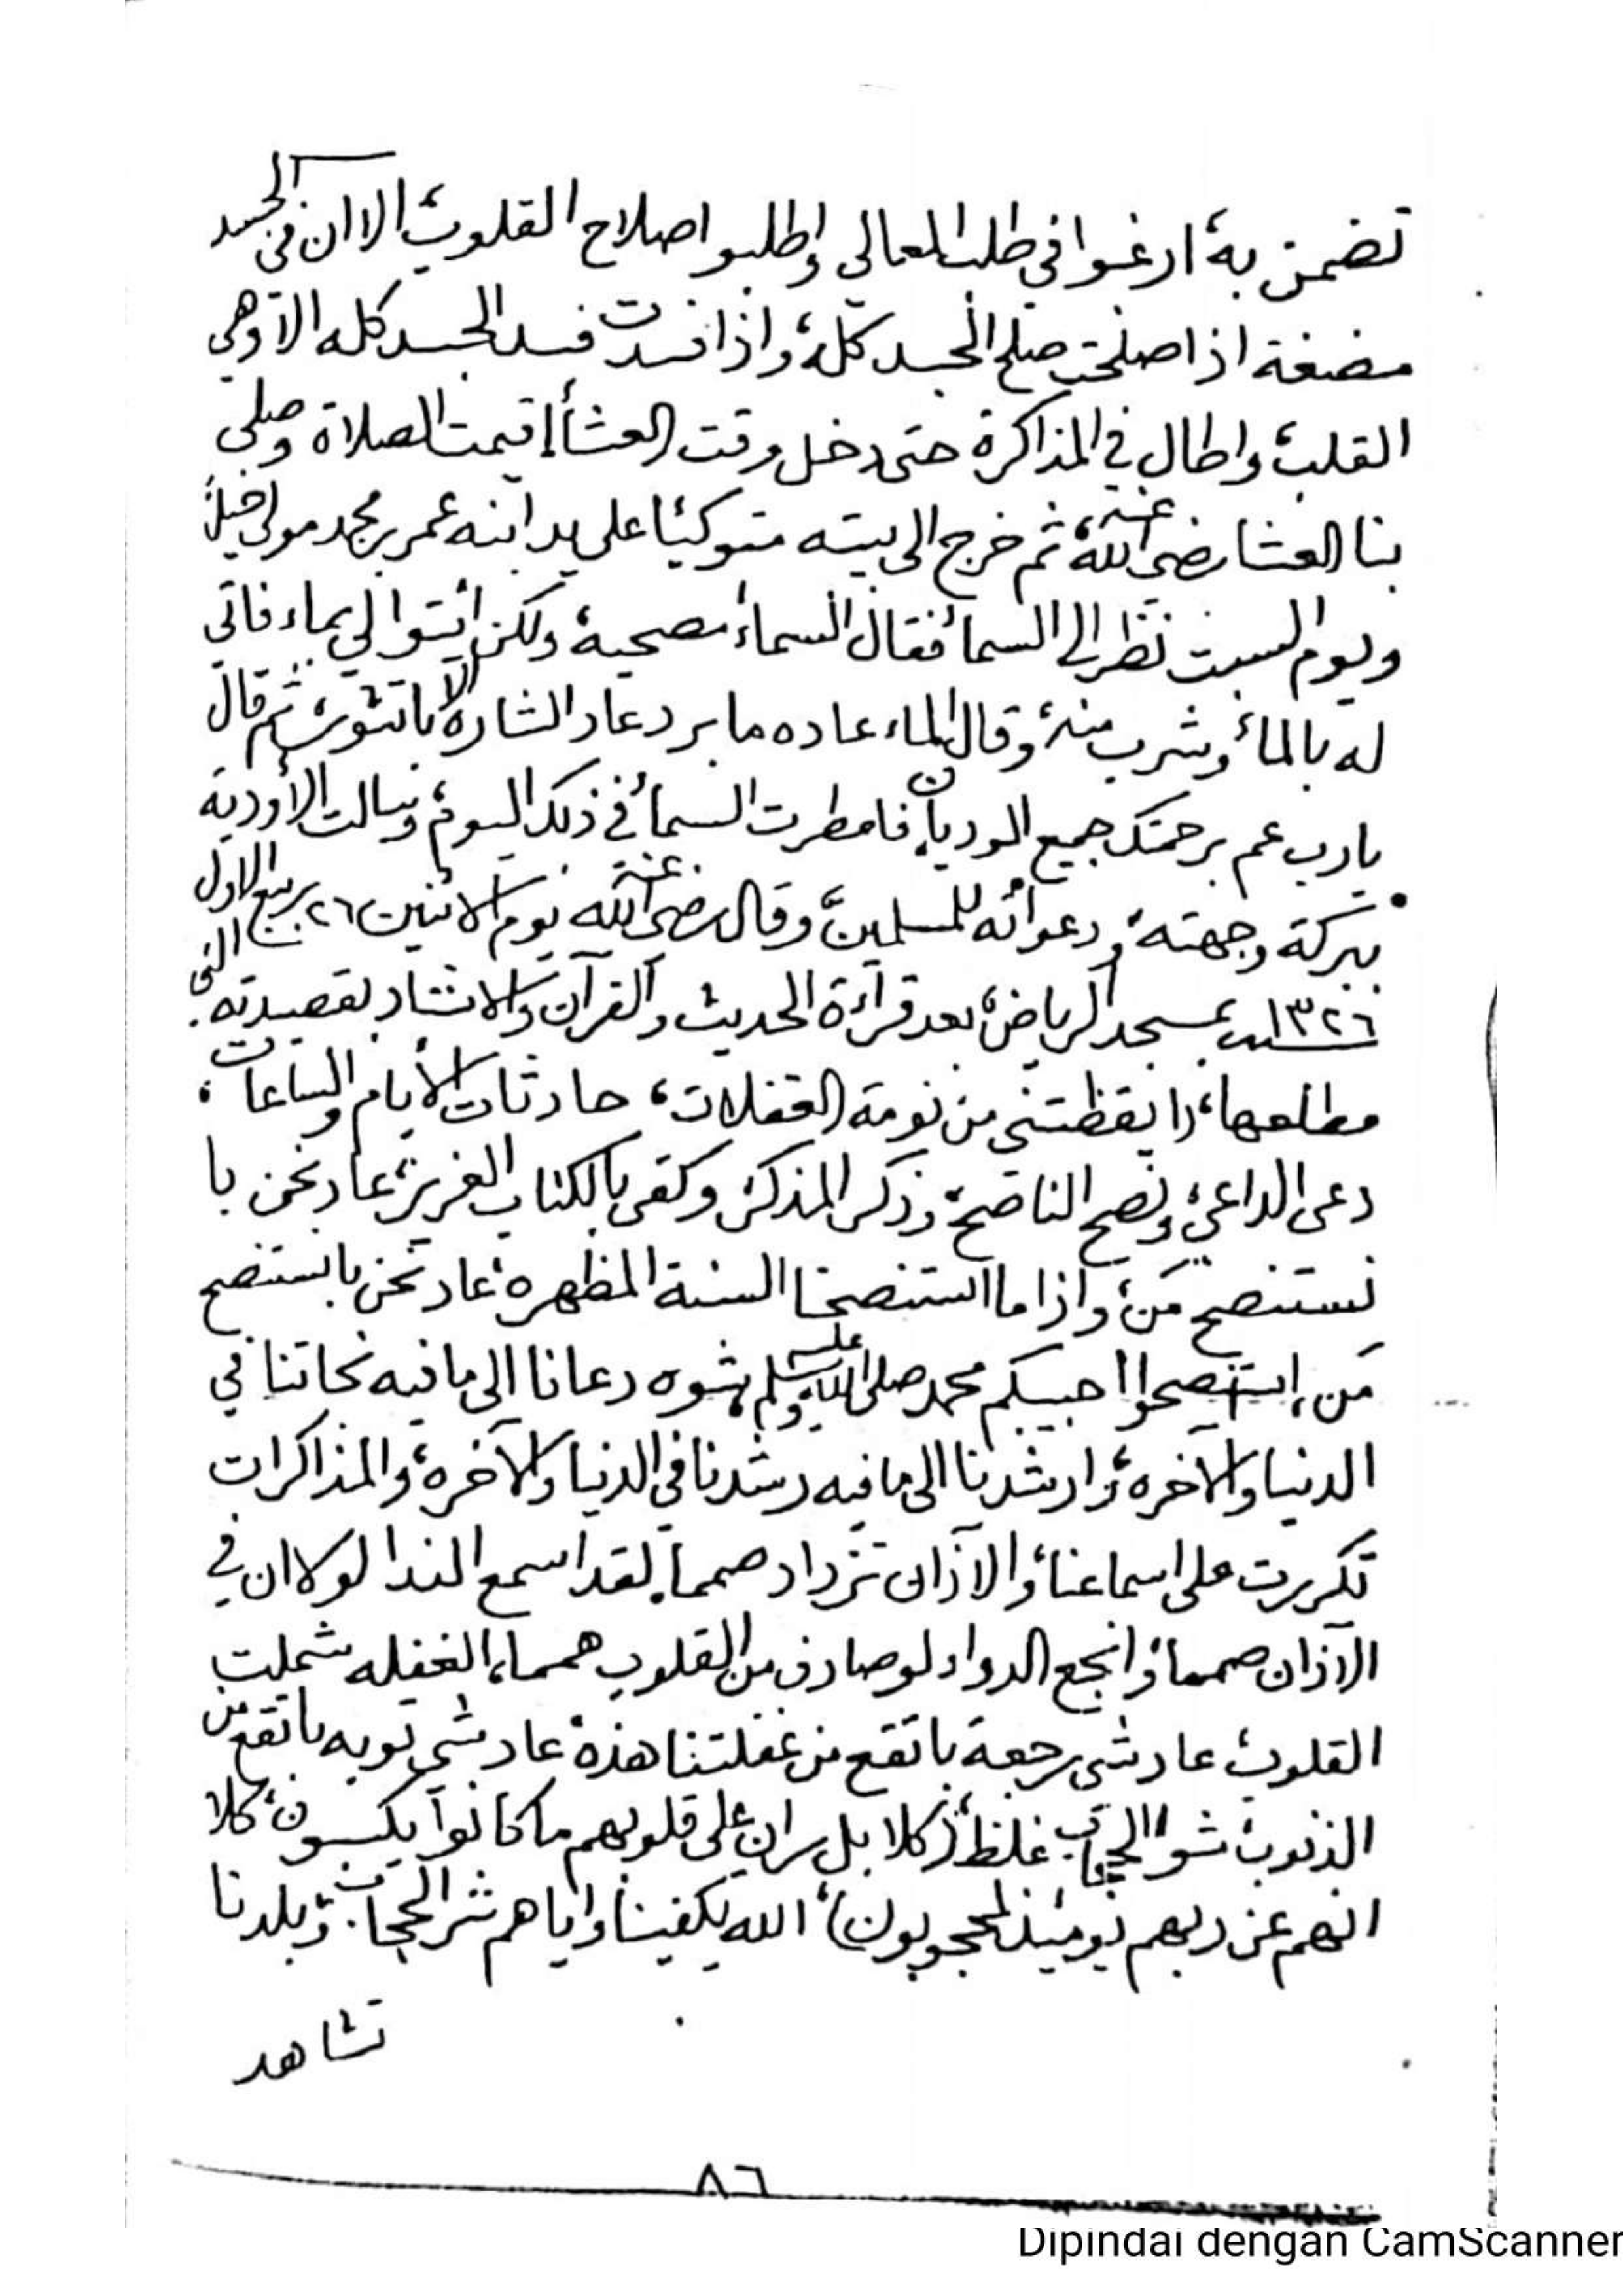 تضمن به، ارغبوا في طلب المعالي واطلبو اصلاح القلوب، الا ان في الجسد
مضغة اذا صلحت صلح الجسد كله، واذا فسدت فسد الجسد كله الا وهي
القلب، واطال في المذاكرة حتى دخل وقت العشأ اقيمت الصلاة وصلى
بنا العشا رضي الله عنه، ثم خرج الى بيته متوكئا على يد ابنه عمر بن محمد مولى خيله
ويوم السبت نظر الى السما، فقال السماء مصحية، ولكن ائتوا لي بماء فاتي
له بالماء، وشرب منه، وقال الماء عاده ما برد عاد الشاره الا باتثوب، ثم قال
يارب عم برحمتك جميع الوديان، فامطرت السما، في ذلك اليوم، وسالت الأودية
ببركة وجهته، ودعوائه للمسلمين، وقال رضي الله عنه يوم الاثنين ٢٦ ربيع الاول
١٣٢٦ سنة بمسجد الرياض، بعد قرآءة الحديث والقرآن والانشاد لقصيدته، التي
مطلعها، (ايقظتني من نومة الغفلات، حادثات الأيام والساعات،
دعى الداعي، ونصح الناصح، وذكر المذكر، وكفى بالكتاب العزيز، عاد نحن با
نستنصح مَن، واذا ما استنصحنا السنة المطهره، عاد نحن با نستنصح
مَن، استنصحوا حبيبكم محمد صلى الله عليه وسلم، شوه دعانا الى ما فيه نجاتنا في
الدنيا والآخره، وارشدنا الى ما فيه رشدنا في الدنيا والآخره، والمذاكرات
تكررت على اسماعنا، والآذان تزداد صمماً. لقد اسمع الندا لولا ان في
الآذان صمما، وانجع الدواء لو صادف من القلوب همما، الغفله شملت
القلوب، عاد شي رجعة با تقع من غفلتنا هذه، عاد شي توبه با تقع من
الذنوب، شوا الحجاب غلظ، (كلا بل ران على قلوبهم ما كانوا يكسبون، كلا
انهم عن ربهم يومئذ لمحجوبون)، الله يكفينا واياهم شر الحجاب، وبلدنا
تشاهد
٨٦
Dipindai dengan CamScanner